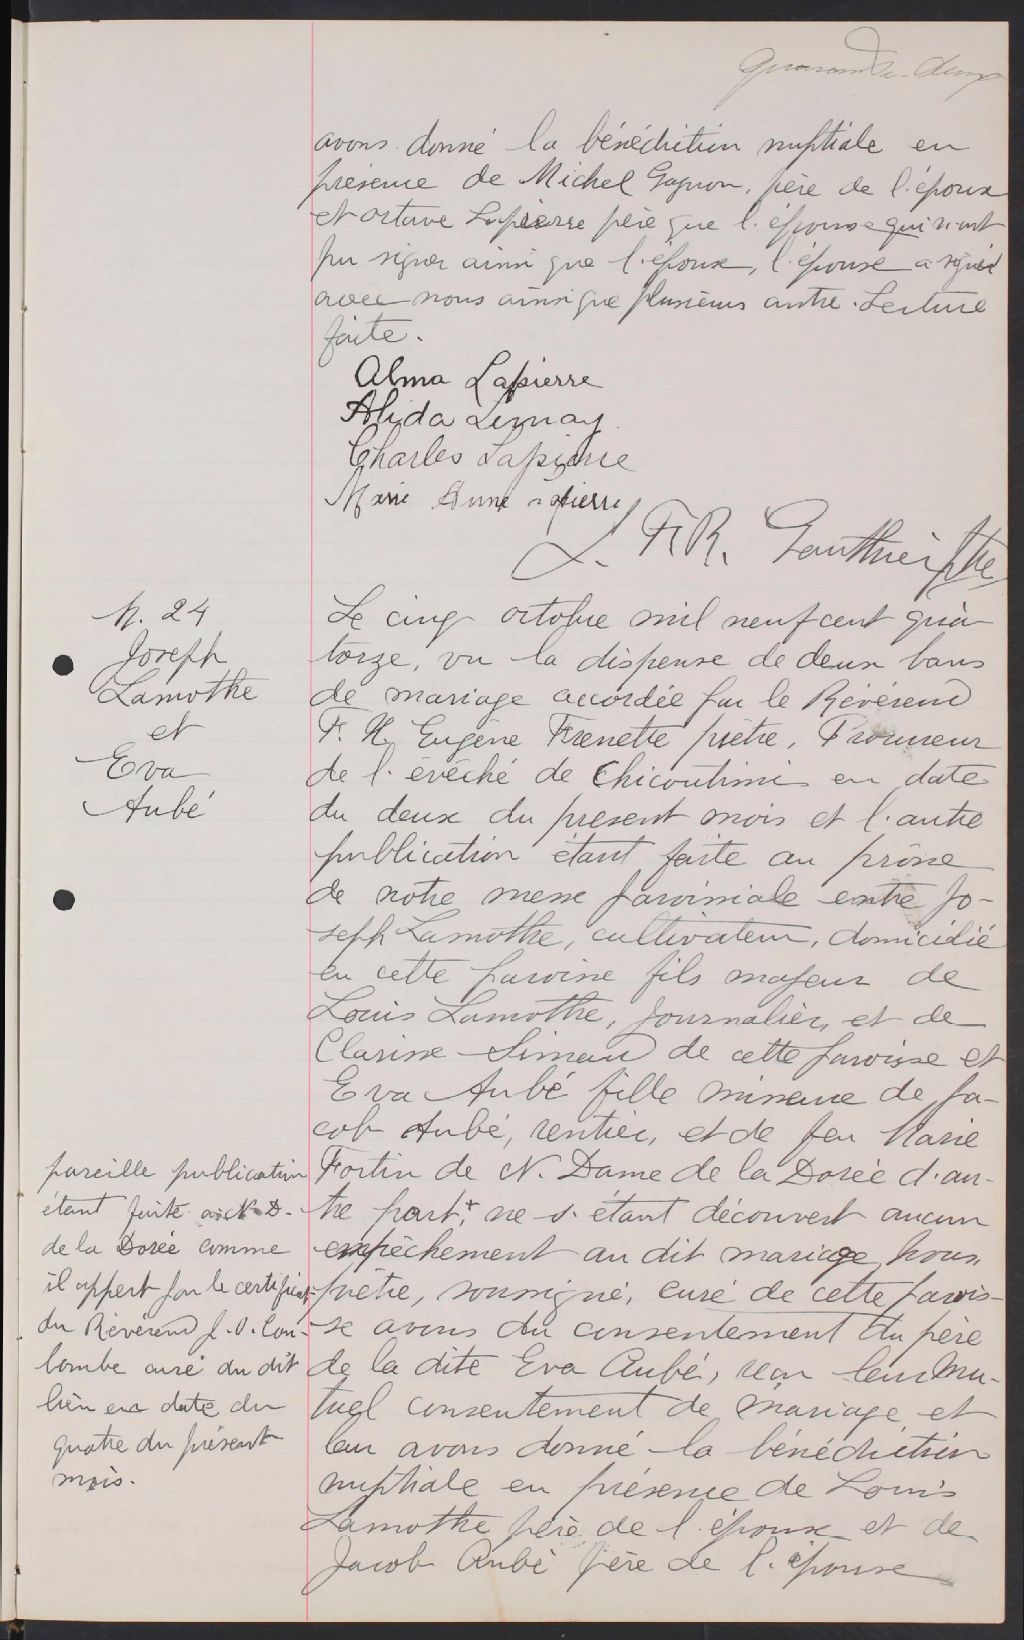 quarante-deux
avons donné la bénédiction nuptiale en
présence de Michel Gagnon, père de l'époux
et octave Lapierre père que l'épouse qui n'ont
pu signer ainsi que l'époux, l'épouse a signé
avec nous ainsi que plusieurs autre. Lecture
faite.
Alma Lapierre
Alida Lemay
Charles Lapierre
Marie Anne Lapierre
L. F. R. Gauthier Ptre
M. 24
Joseph
Lamothe
et
Eva
Aubé
Le cinq octobre mil neuf cent qua-
torze, vu la dispense de deux bans
de mariage accordée par le Révérend
F. X. Eugène Frenette prêtre, Procureur
de l'évêché de Chicoutimi en date
du deux du present mois et l'autre
publication étant faite au prône
de notre messe paroissiale entre Jo-
seph Lamothe, cultivateur, domicilié
en cette paroisse fils majeur de
Louis Lamothe, Journalier, et de
Clarisse Simard de cette paroisse et
Eva Aubé fille mineure de Ja-
cob Aubé, rentier, et de feu Marie
Fortin de N. Dame de la Dorée d'au-
tre part,+ ne s'étant découvert aucun
empêchement au dit mariage, nous,
prêtre, soussigné, curé de cette parois-
se avons du consentement du père
de la dite Eva Aubé, reçu leur mu-
tuel consentement de mariage et
leur avons donné la bénédiction
nuptiale en présence de Louis
Lamothe père de l'époux et de
Jacob Aubé père de l'épouse
pareille publication
étant faite à N. D.
de la Dorée comme
il appert par le certificat
du Révérend J. O. Cou-
lombe curé du dit
lieu en date du
quatre du présent
mois.